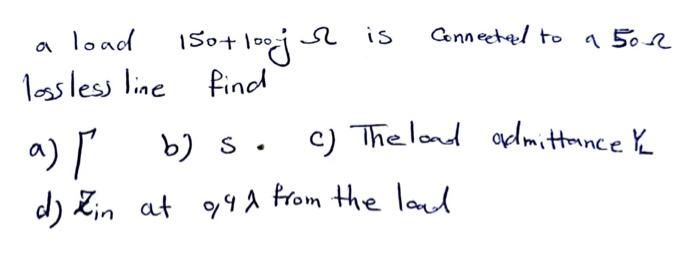 a load 150+100j Ω is Connected to a 50Ω
lossless line find
a) Γ b) s . c) The load admittance YL
d) Zin at 0,4 λ from the load